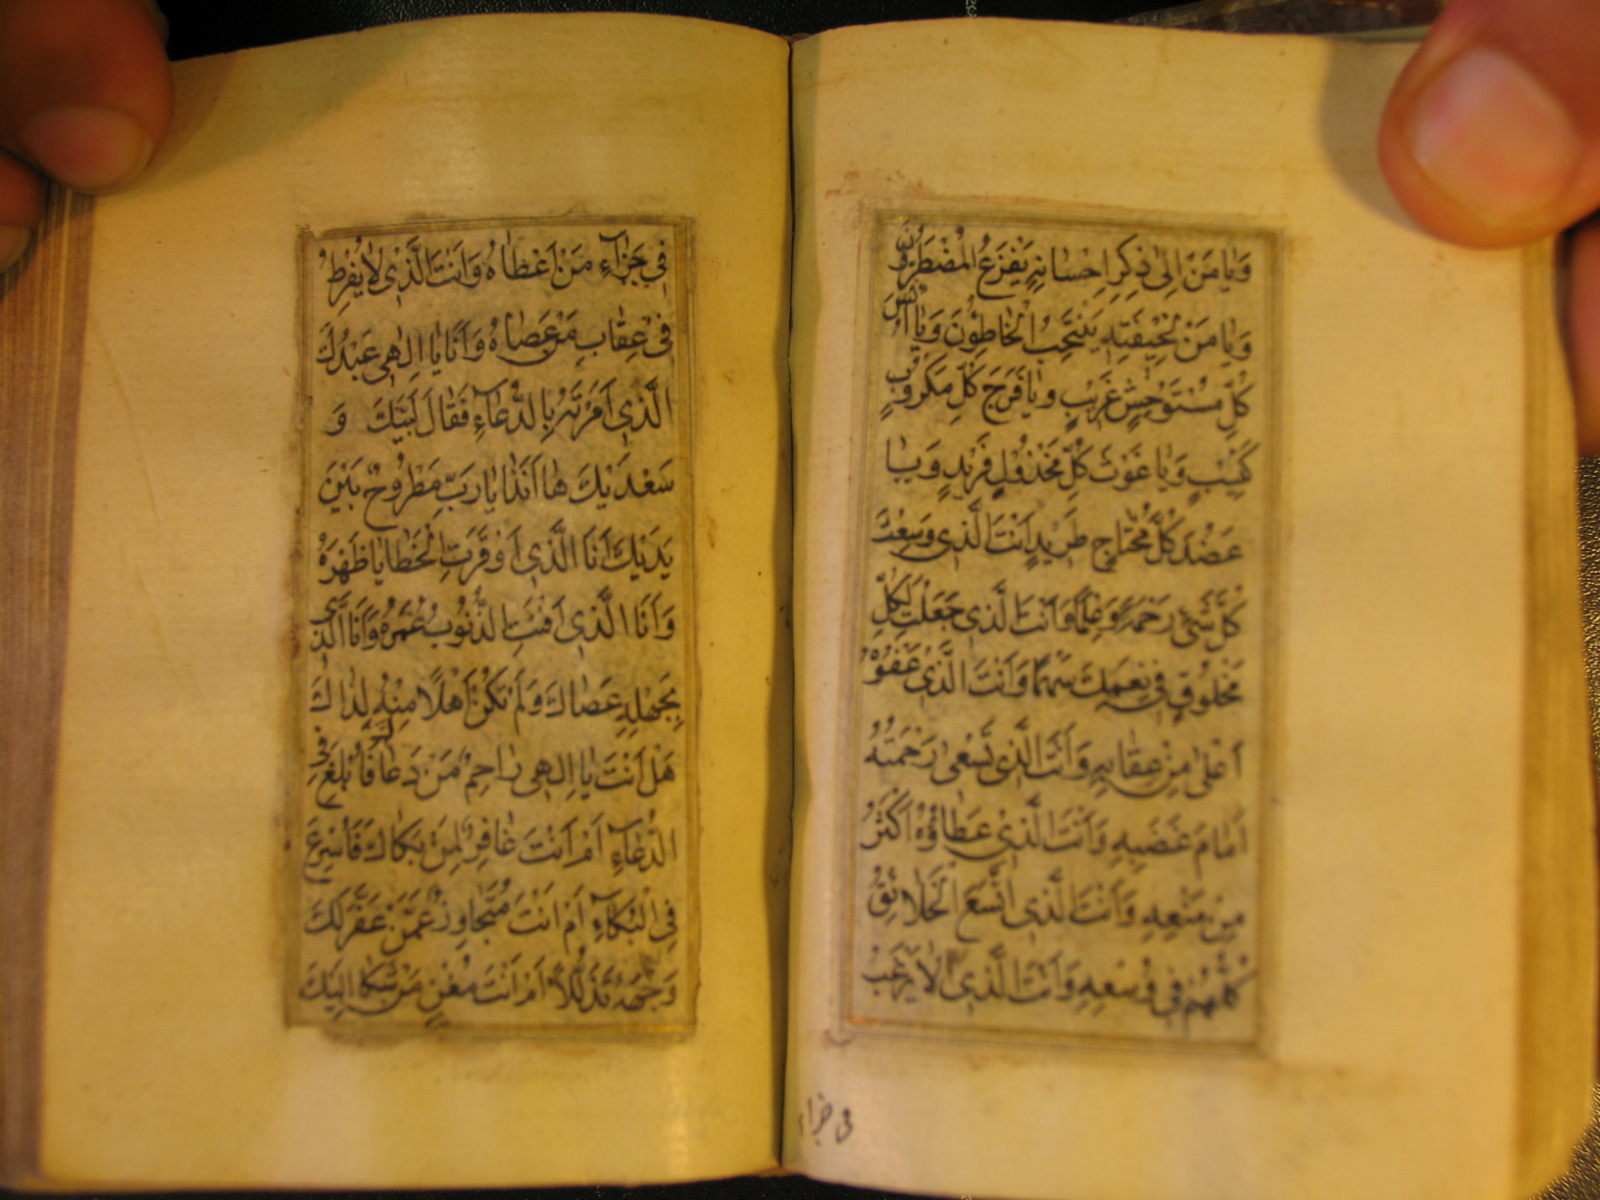 وَيٰا مَنْ اِلىٰ ذِكْرِ اِحْسٰانِهِ يَفْزَعُ الْمُضْطَرُّونَ
وَيٰا مَنْ لِخيفَتِهِ يَنْتَحِبُ الْخٰاطِئُونَ وَيٰا اُنْسَ
كُلِّ مُسْتَوْحِشٍ غَريبٍ وَيٰا فَرَجَ كُلِّ مَكْرُوبٍ
كَئيبٍ وَيٰا غَوْثَ كُلِّ مَخْذُولٍ فَريدٍ وَيٰا
عَضُدَ كُلِّ مُحْتٰاجٍ طَريدٍ اَنْتَ الَّذى وَسِعْتَ
كُلَّ شَىْءٍ رَحْمَةً وَعِلْماً وَاَنْتَ الَّذى جَعَلْتَ لِكُلِّ
مَخْلُوقٍ فى نِعَمِكَ سَهْماً وَاَنْتَ الَّذى عَفْوُهُ
اَعْلىٰ مِنْ عِقٰابِهِ وَاَنْتَ الَّذى تَسْعىٰ رَحْمَتُهُ
اَمٰامَ غَضَبِهِ وَاَنْتَ الَّذى عَطٰاؤُهُ اَكْثَرُ
مِنْ مَنْعِهِ وَاَنْتَ الَّذى اتَّسَعَ الْخَلٰائِقُ
كُلُّهُمْ فى وُسْعِهِ وَاَنْتَ الَّذى لٰا يَرْغَبُ
فى جزاء
فى جَزٰآءِ مَنْ اَعْطٰاهُ وَاَنْتَ الَّذى لٰا يُفْرِطُ
فى عِقٰابِ مَنْ عَصٰاهُ وَاَنَا يٰا اِلٰهى عَبْدُكَ
الَّذى اَمَرْتَهُ بِالدُّعٰآءِ فَقٰالَ لَبَّيْكَ وَ
سَعْدَيْكَ هٰا اَنَذٰا يٰا رَبِّ مَطْرُوحٌ بَيْنَ
يَدَيْكَ اَنَا الَّذى اَوْقَرَتِ الْخَطٰايٰا ظَهْرَهُ
وَاَنَا الَّذى اَفْنَتِ الذُّنُوبُ عُمْرَهُ وَاَنَا الَّذى
بِجَهْلِهِ عَصٰاكَ وَلَمْ تَكُنْ اَهْلاً مِنْهُ لِذٰاكَ
هَلْ اَنْتَ يٰا اِلٰهى رٰاحِمٌ مَنْ دَعٰاكَ فَاُبْلِغَ فِى
الدُّعٰآءِ اَمْ اَنْتَ غٰافِرٌ لِمَنْ بَكٰاكَ فَاُسْرِعَ
فِى الْبُكٰآءِ اَمْ اَنْتَ مُتَجٰاوِزٌ عَمَّنْ عَفَّرَ لَكَ
وَجْهَهُ تَذَلُّلاً اَمْ اَنْتَ مُغْنٍ مَنْ شَكٰا اِلَيْكَ